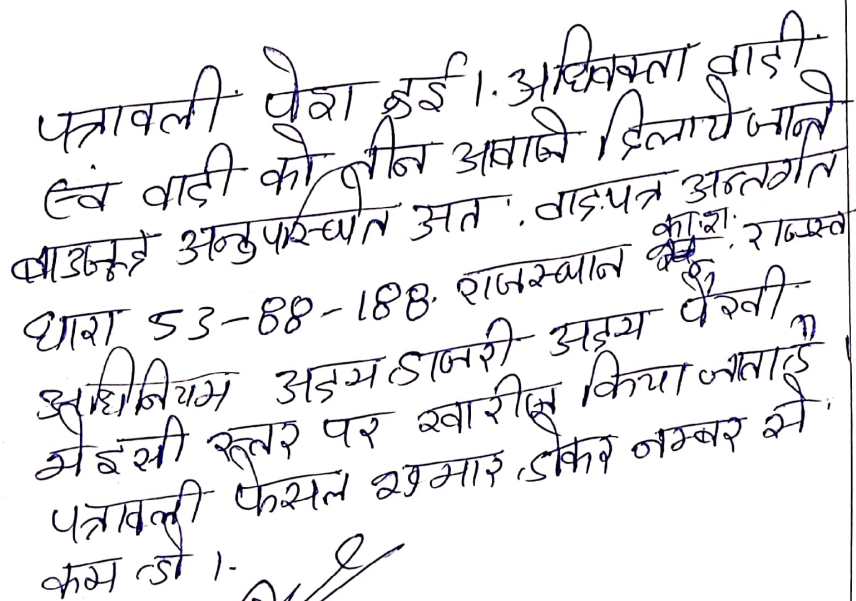 पत्रावली पेश हुई।. अधिवक्ता वादी
एवं वादी को तीन आवाजे दिलाये जाने
बावजूद अनुपस्थित अतः वादपत्र अन्तर्गत
धारा 53-88-188. राजस्थान का.श. राजस्व
अधिनियम अदम हाजरी अदम पैरवी
मे इसी स्तर पर खारीज किया जाता है।
पत्रावली फैसल शुमार होकर नम्बर से
कम हो।.